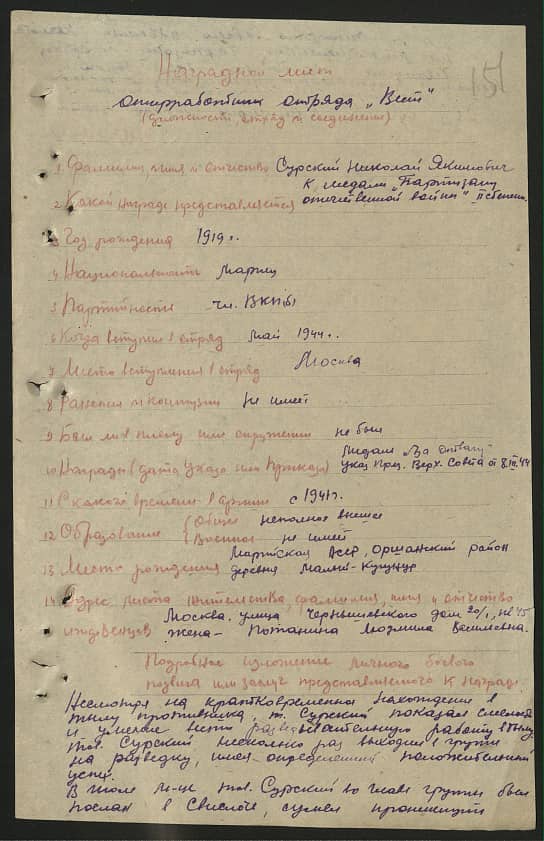 151
Наградной лист
оперработник отряда „Вест"
(должность, отряд и соединение)
1 Фамилия, имя и отчество Сурский Николай Якимович
к медали „Партизану
2 Какой награде представляется отечественной войны" II степени.
3 Год рождения 1919 г.
4 Национальность мариец
5 Партийность чл. ВКП(б)
6 Когда вступил в отряд май 1944 г.
7 Место вступления в отряд Москва
8 Ранения и контузии не имеет
9 Был ли в плену или окружении не был
медаль „За отвагу"
10 Награды (дата Указа или Приказа) указ През. Верх. Совета от 8.III.44
11 С какого времени в армии с 1941 г.
12 Образование (Общее неполное высшее
(Военное не имеет
Марийская АССР, Оршанский район
13 Место рождения деревня Малый-Кущнур
14 Адрес места жительства, фамилия, имя и отчество
Москва, улица Чернышевского дом 20/1, кв. 45
иждивенцев жена - Потанина Людмила Васильевна.
Подробное изложение личного боевого
подвига или заслуг представляемого к награде
Несмотря на кратковременное нахождение в
тылу противника, т. Сурский показал смелость
и умение вести разведывательную работу в тылу
тов. Сурский несколько раз выходил с группой
на разведку, имел определенный положительный
успех.
В июле м-це тов. Сурский во главе группы был
послан в Свислочь, сумел проникнуть